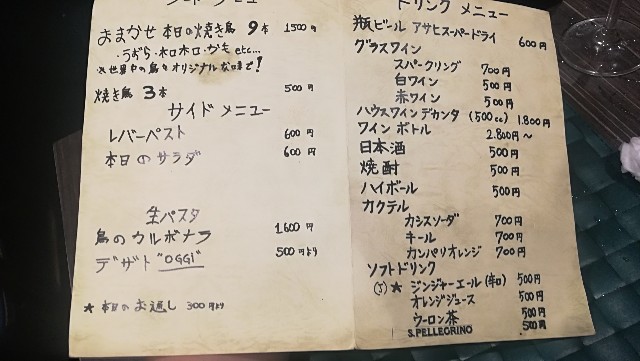 おまかせ 本日の焼き鳥 9本 1500円
・うずら・ホロホロ・かも etc...
※世界中の鳥をオリジナルな味で!
焼き鳥 3本 500円
サイド メニュー
レバーペスト 600円
本日のサラダ 600円
生パスタ
鳥のウルボナラ 1,600円
デザト "OGGI" 500円より
★ 本日のお通し 300円より
ドリンク メニュー
瓶ビール アサヒスーパードライ 600円
グラスワイン
スパークリング 700円
白ワイン 500円
赤ワイン 500円
ハウスワイン デカンタ (500cc) 1,800円
ワイン ボトル 2,800円〜
日本酒 500円
焼酎 500円
ハイボール 500円
カクテル
カシスソーダ 700円
キール 700円
カンパリオレンジ 700円
ソフトドリンク
(J)★ ジンジャーエール (辛口) 500円
オレンジジュース 500円
ウーロン茶 500円
S.PELLEGRINO 500円